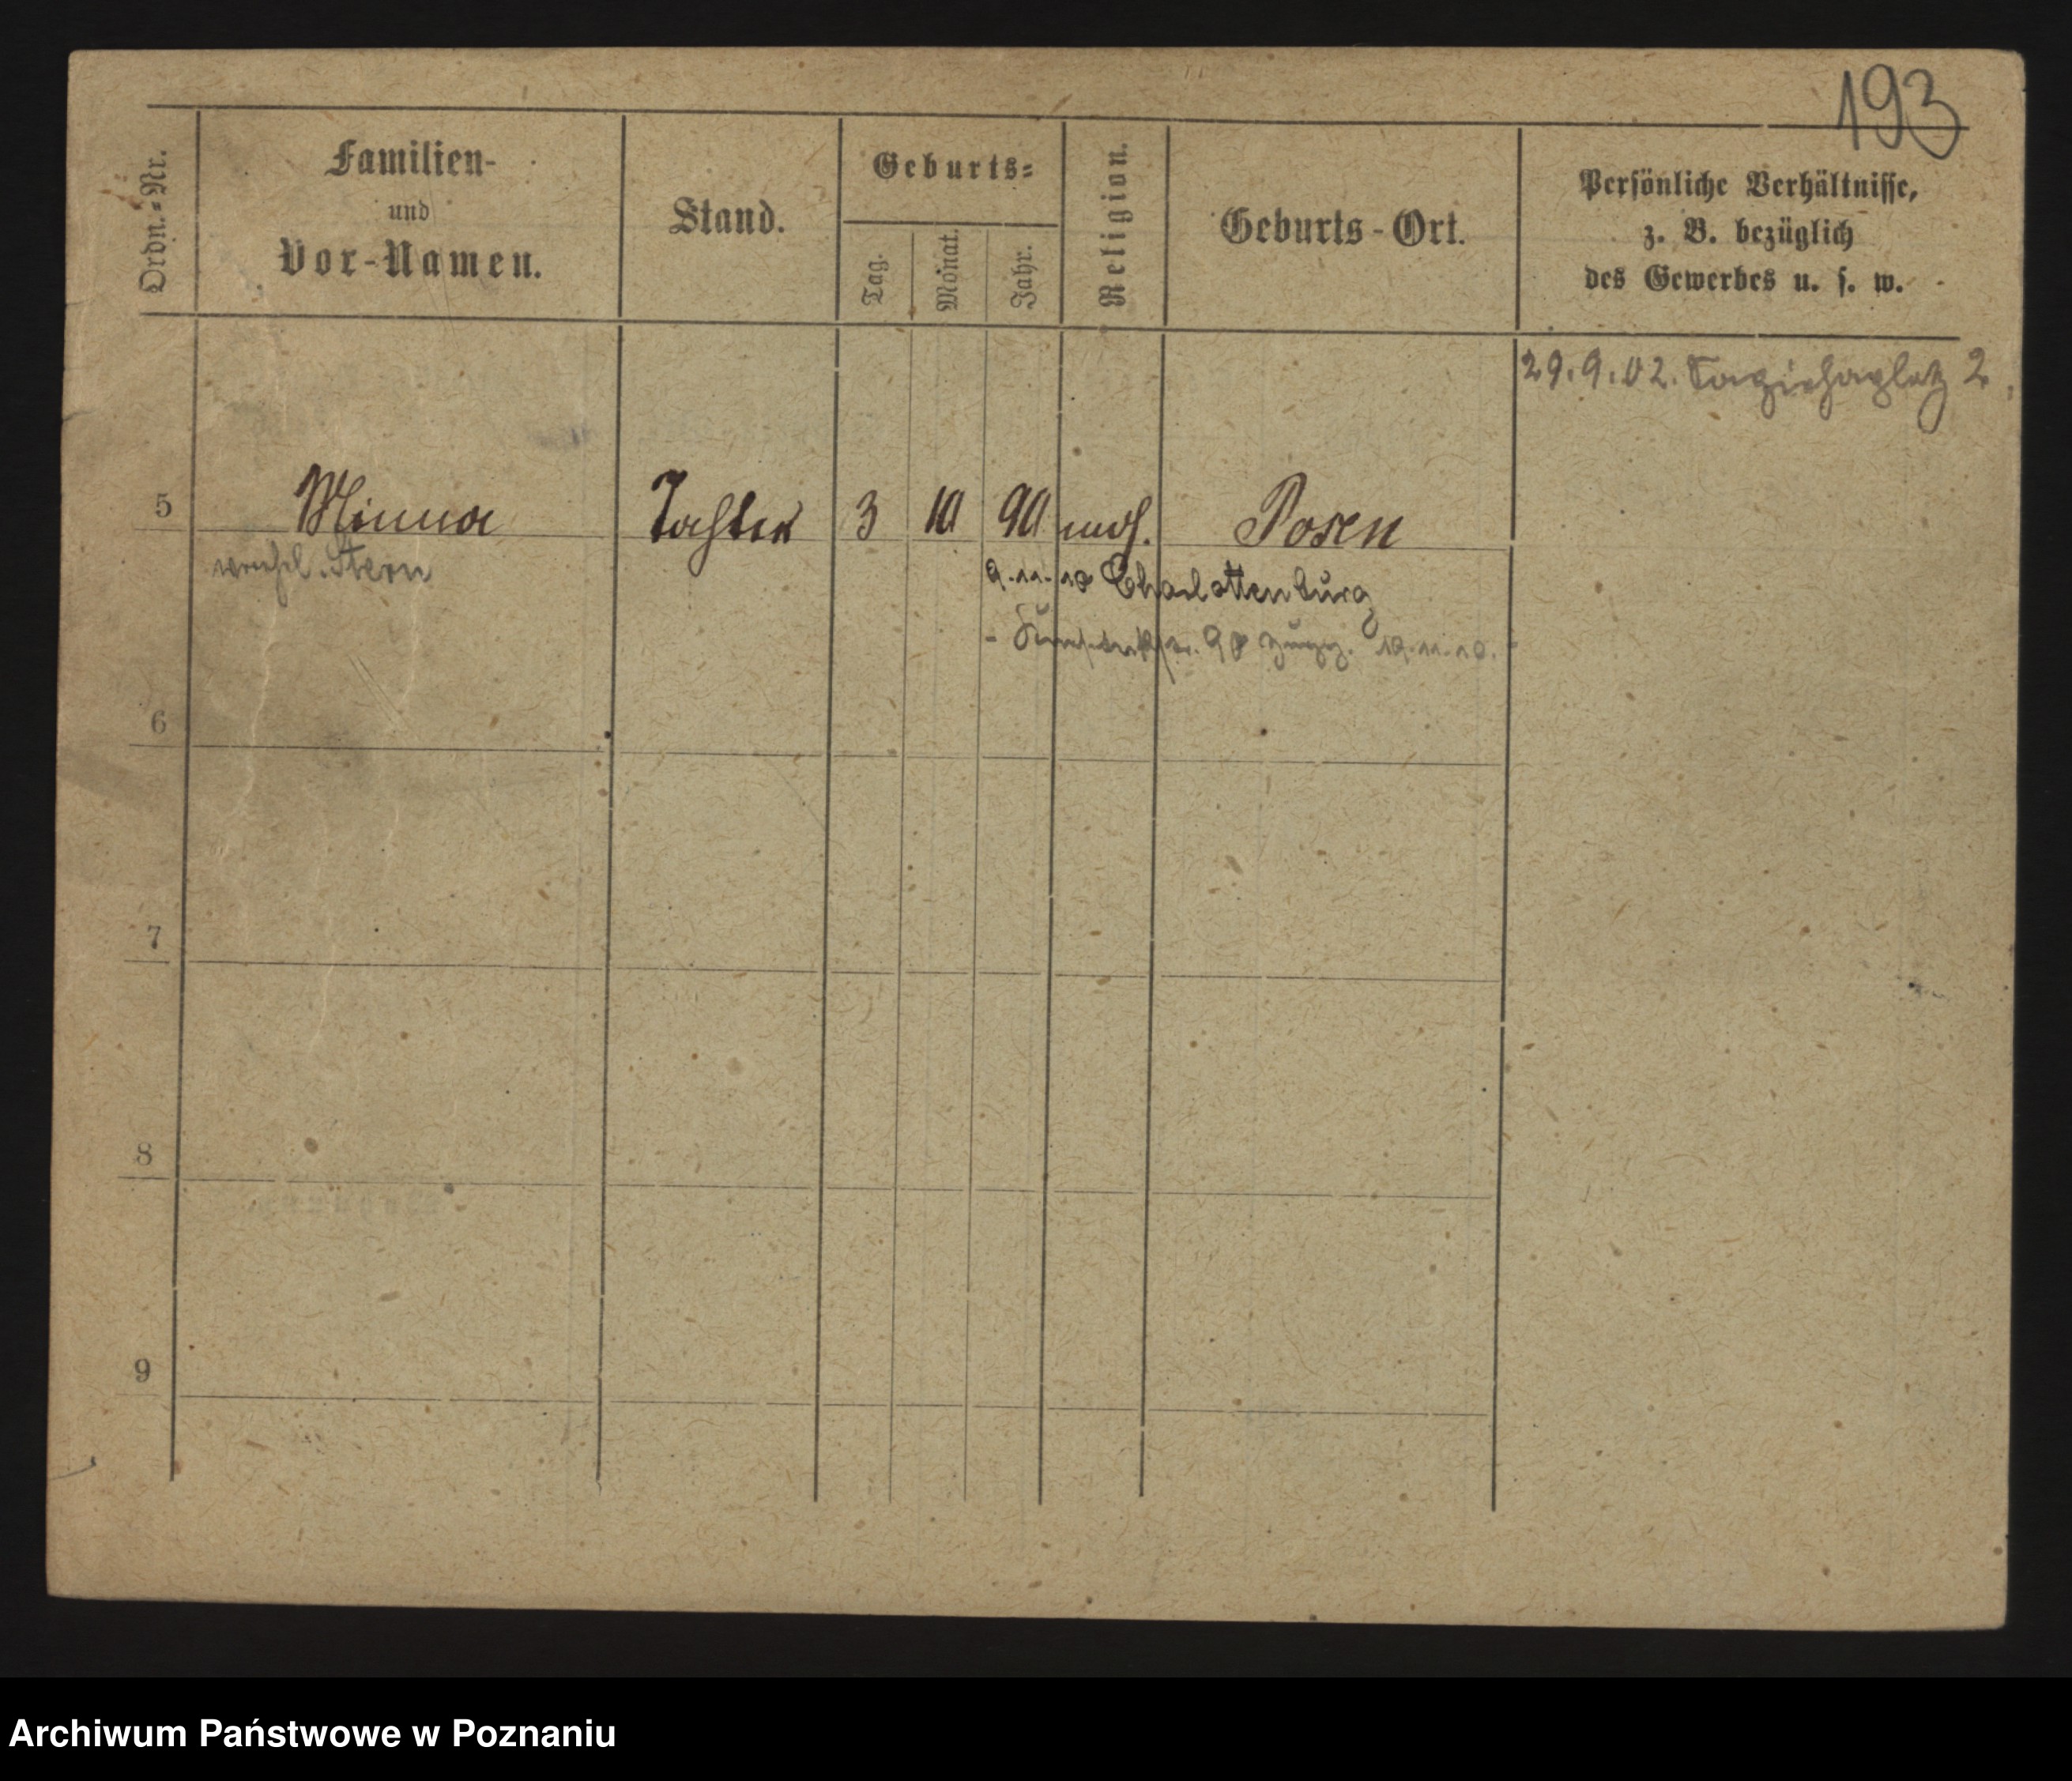 193
Ordn.-Nr.
Familien-
und
Vor-Namen.
Stand.
Geburts-
Tag.
Monat.
Jahr.
Religion.
Geburts-Ort.
Persönliche Verhältnisse,
z. B. bezüglich
des Gewerbes u. s. w.
29.9.02. Sapiehaplatz 2
5 Minna Tochter 3 10 90 mos. Posen
verehl. Stern
9.11.10 Charlottenburg
90 zugez. 10.11.10.
6
7
8
9
Archiwum Państwowe w Poznaniu